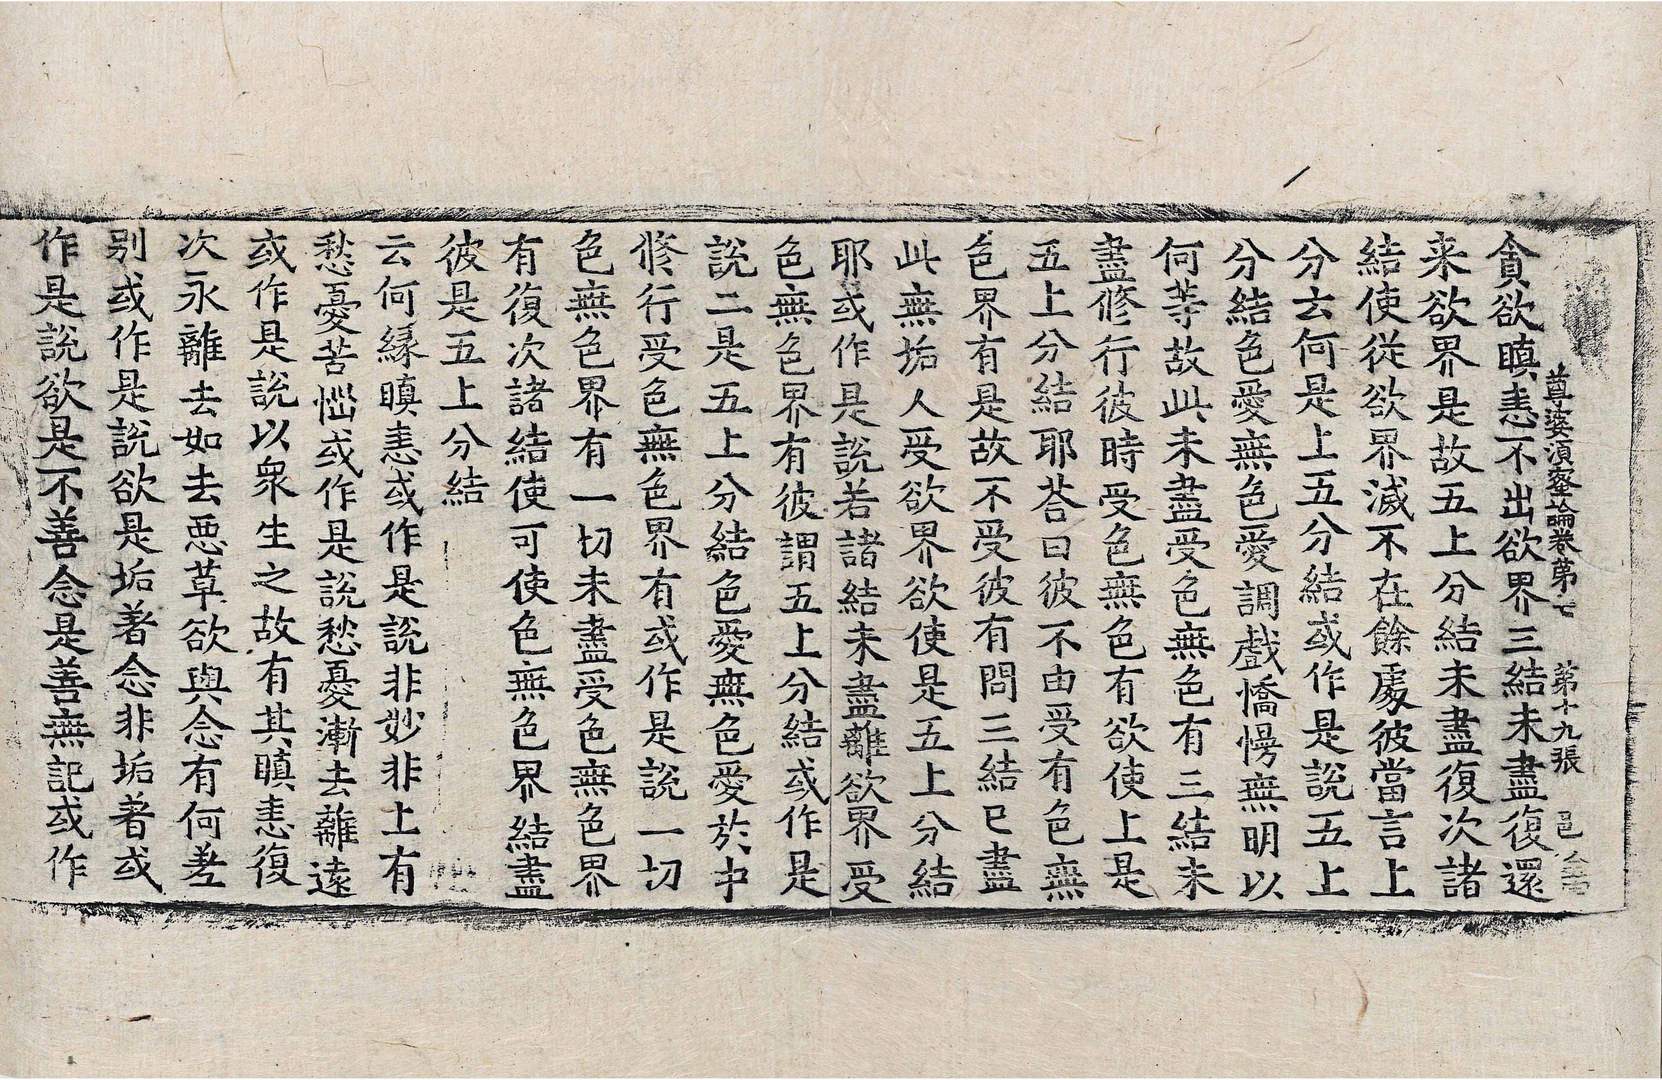 尊婆須蜜論卷第七 第十九張 邑
貪欲瞋恚不出欲界三結未盡復還
来欲界是故五上分結未盡復次諸
結使從欲界滅不在餘處彼當言上
分云何是上五分結或作是說五上
分結色愛無色愛調戲憍慢無明以
何等故此未盡受色無色有三結未
盡修行彼時受色無色有欲使上是
五上分結耶荅曰彼不由受有色無
色界有是故不受彼有問三結已盡
此無垢人受欲界欲使是五上分結
耶或作是說若諸結未盡離欲界受
色無色界有彼謂五上分結或作是
說二是五上分結色愛無色愛於中
修行受色無色界有或作是說一切
色無色界有一切未盡受色無色界
有復次諸結使可使色無色界結盡
彼是五上分結
云何緣瞋恚或作是說非妙非上有
愁憂苦惱或作是說愁憂漸去離遠
或作是說以衆生之故有其瞋恚復
次永離去如去惡草欲與念有何差
別或作是說欲是垢著念非垢著或
作是說欲是不善念是善無記或作